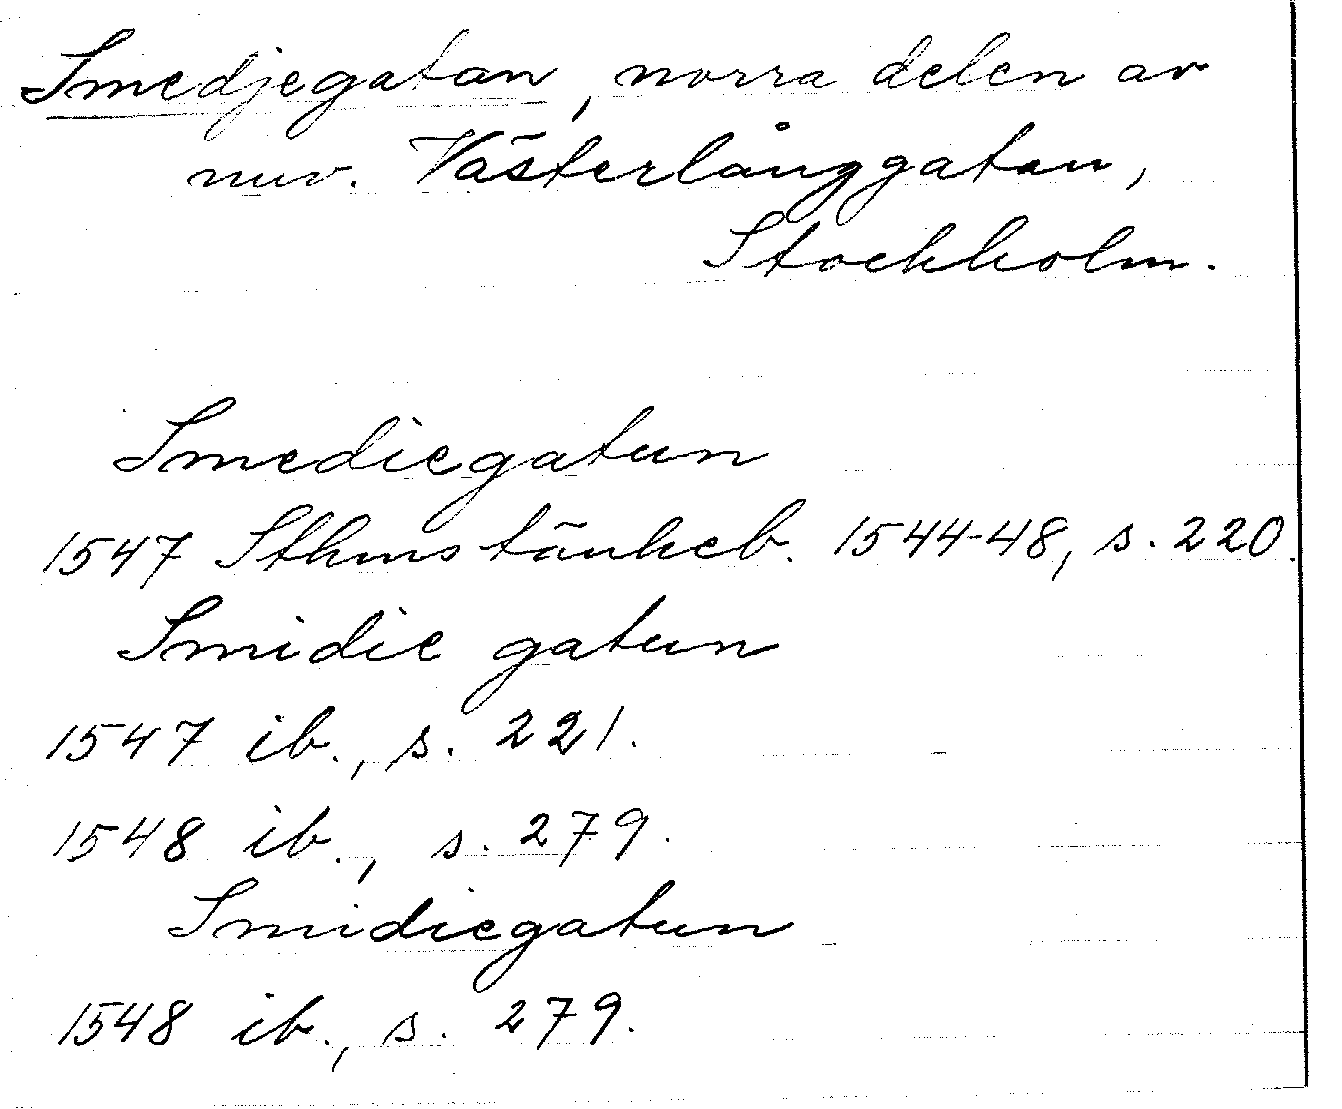 Smedjegatan, norra delen av
nuv. Västerlånggatan,
Stockholm.
Smediegatun
1547 Sthms tänkeb. 1544-48, s. 220.
Smidie gatun
1547 ib., s. 221.
1548 ib., s. 279.
Smidiegatun
1548 ib., s. 279.